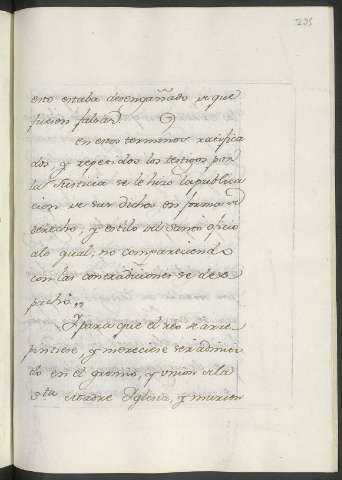 235
esto estaba desengañado de que
fuesen falsas
en estos terminos ratifica
dos, y repetidos los testigos por
la Justicia se le hizo la publica
cion de sus dichos en forma de
derecho, y estilo del Santo oficio
alo qual, no compareciendo
con las contradiciones se des
pachò
Y para que el reo se arre
pintiese, y mereciese ser admiti
do en el gremio, y union de la
Sta Madre Yglesia, y muriese